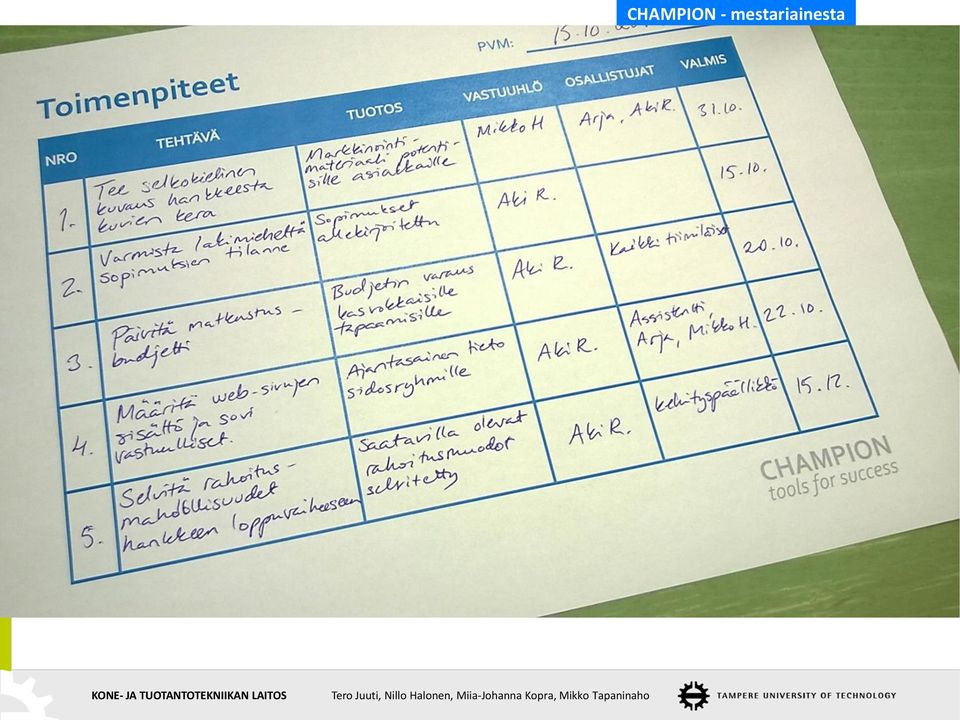 CHAMPION - mestariainesta
PVM: 15.10.
Toimenpiteet
NRO TEHTÄVÄ TUOTOS VASTUUHLÖ OSALLISTUJAT VALMIS
1. Tee selkokielinen kuvaus hankkeesta kuvien kera Markkinointi- materiaali potenti- sille asiakkaille Mikko H Arja, Aki R. 31.10.
2. Varmista lakimieheltä sopimuksien tilanne Sopimukset allekirjoitettu Aki R. 15.10.
3. Päivitä matkustus- budjetti Budjetin varaus kasvokkaisille tapaamisille Aki R. Kaikki tiimiläiset 20.10.
4. Määritä web-sivujen sisältö ja sovi vastuulliset. Ajantasainen tieto sidosryhmille Aki R. Assistentti, Arja, Mikko H. 22.10.
5. Selvitä rahoitus- mahdollisuudet hankkeen loppuvaiheeseen Saatavilla olevat rahoitusmuodot selvitetty Aki R. kehityspäällikkö 15.12.
CHAMPION
tools for success
KONE- JA TUOTANTOTEKNIIKAN LAITOS Tero Juuti, Nillo Halonen, Miia-Johanna Kopra, Mikko Tapaninaho TAMPERE UNIVERSITY OF TECHNOLOGY